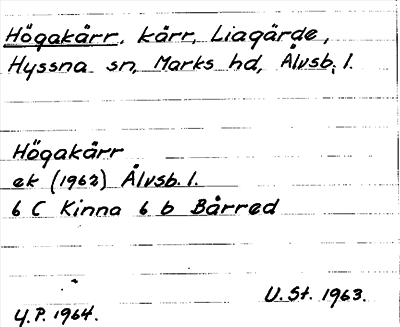 Högakärr, kärr, Liagärde,
Hyssna sn, Marks hd, Älvsb. l.
Högakärr
ek (1962) Älvsb. l.
6 C Kinna 6 b Bårred
U. St. 1963.
Y.P. 1964.